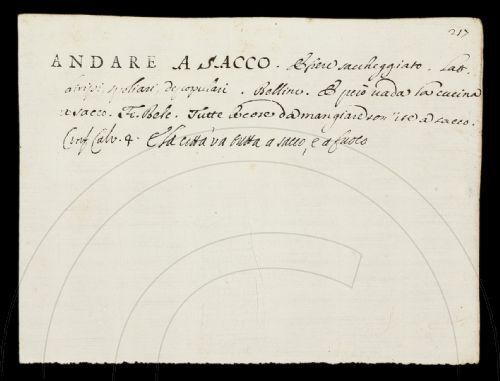 217
ANDARE A SACCO. Essere saccheggiato. Lat.
diripi, spoliari, depopulari. Bellinc. E però vada la cucina
a sacco. Fi. Bele. Tutte le cose da mangiare son' ite a sacco.
Cirif. Calv. 4. E la città va tutta a sacco, e a fuoco